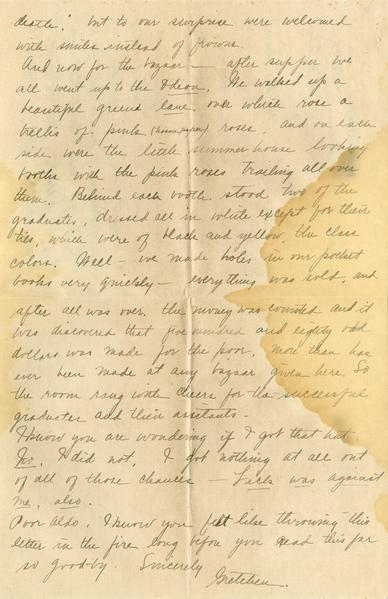 death". but to our surprise were welcomed
with smiles instead of frowns.
And now for the bazaar — after supper we
all went up to the Odeon. We walked up a
beautiful green lane, over which rose a
trellis of pink roses, and on each
side were the little summer-house looking
booths with the pink roses trailing all over
them. Behind each booth stood two of the
graduates, dressed all in white except for their
ties, which were of black and yellow, the class
colors. Well — we made holes in our pocket
books very quickly — everything was sold, and
after all was over, the money was counted and it
was discovered that five hundred and eighty odd
dollars was made for the poor, more than has
ever been made at any bazaar given here. So
the room rang with cheers for the successful
graduates and their assistants.
I know you are wondering if I got that hat.
No, I did not, I got nothing at all out
of all of those chances — Luck was against
me, also.
Poor Aldo, I know you felt like throwing this
letter in the fire long before you read this far
so good-by. Sincerely
Gretchen.